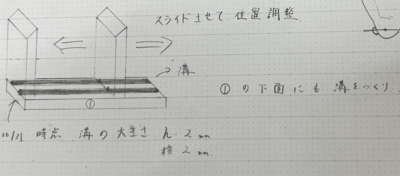 スライドさせて位置調整
溝
①
①の下面にも溝をつくり
時点 溝の大きさ 2mm
横 2mm